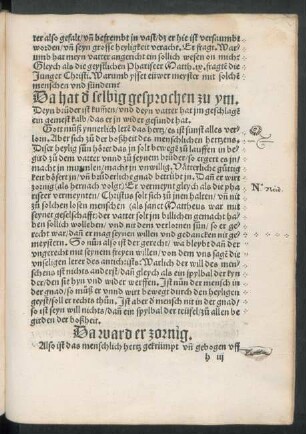 ter also gefalt/ vñ befrembt in vast/ dz er hie ist versaumbt
worden/ vñ seyn grosse heyligkeit veracht. Er fragt. War⸗
umb hat meyn vatter angericht ein sollich wesen on mich?
Gleych als die geystlichen Phariseer Matth. ix. fragtē die
Junger Christi. Warumb ysset euwer meyster mit solchē
menschen vnd sündern?
Da hat d̕ selbig gesprochen zu ym.
Deyn brüder ist kummē/ vnd deyn vatter hat ym geschlagē
ein gemest kalb/ das er in wider gesund hat.
Gott müß ynnerlich lert das hertz/ es ist sunst alles ver
lorn. Aber sich zu der boßheit des menschlichen hertzens.
Diser heylig sun hört das jn solt bewegē zu lauffen in be⸗
gird zu dem vatter vnnd zu seynem brüder/ so eygert es jn/
macht in murmlen/ macht jn vnwillig. Vätterliche gütig⸗
keit bösert jn/ vñ brüderliche gnad betrübt jn. Dañ er wirt
zornig (als hernach volgt) Er vermeynt gleych als die pha
riseer vermeynten/ Christus solt sich zu jnen halten/ vñ nit
zu solchen losen menschen (als janet Mattheus was mit
seynet gesellschafft: der vatter solt jn billichen gemacht ha⸗
ben sollich wolleben/ vnd nit dem verlornen sün/ so er ge⸗
recht was/ dañ er mag seynen willen vnd gedancken nit ge
meystern. So nůn also ist der gerecht/ wa bleybt dañ der
vngerecht mit seynem freyen willen/ von dem vns sagē die
vnseligen lerer des antechrists? Warlich der will des men⸗
schens ist nichts anderst/ dañ gleych als ein spylbal der kyn
der/ den sie hin vnd wider werffen. Ist nůn der mensch in
der gnad/ so müß er vnd wirt bewegt durch den heyligen
geyst/ soll er rechts thůn. Ist aber d̕ mensch nit in der gnad/
so ist seyn will nichts/ dañ ein spylbal der teüfel/ zu allen be
girden der boßheit.
Da ward er zornig.
Also ist das menschlich hertz gekrümpt vñ gebogen vff
h iij